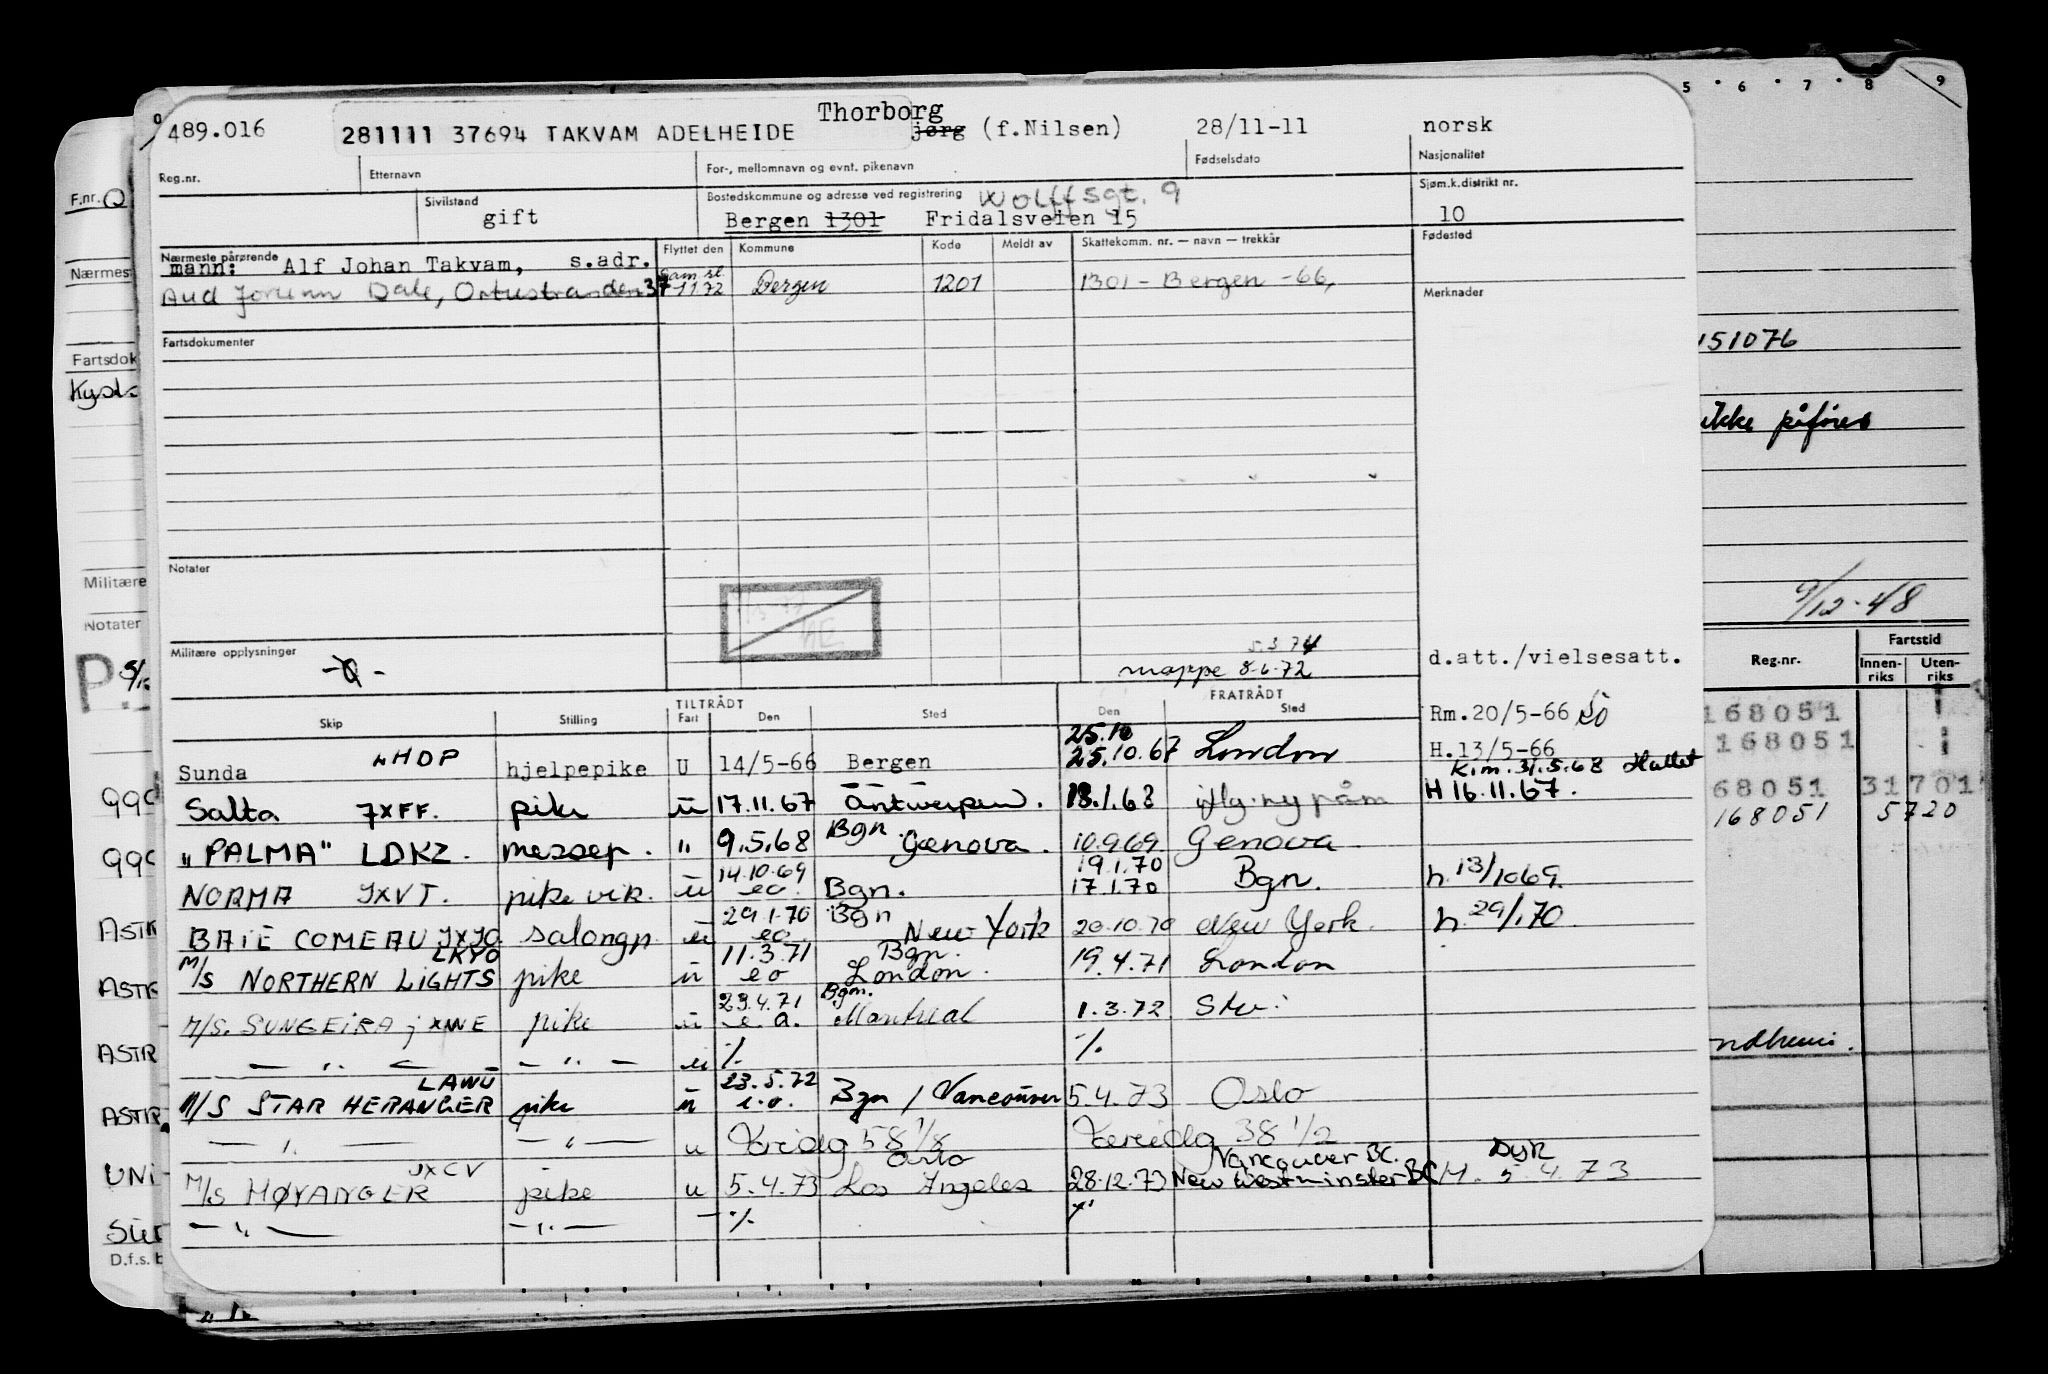 Thorborg
489.016 281111 37694 TAKVAM ADELHEIDE jørg (f.Nilsen) 28/11-11 norsk
Reg.nr. Etternavn For-, mellomnavn og evnt. pikenavn Fødselsdato Nasjonalitet
Sivilstand Bostedskommune og adresse ved registrering Wolffsgt. 9 Sjøm.k.distrikt nr.
gift Bergen 1301 Fridalsveien 15 10
Nærmeste pårørende Flyttet den Kommune Kode Meldt av Skattekomm. nr. — navn — trekkår Fødested
mann: Alf Johan Takvam, s.adr.
Aud Jorunn Dale, Ortustranden 37 -1172 Bergen 1201 1301 - Bergen -66,
Merknader
Fartsdokumenter
Notater
Militære opplysninger
5.3.74
mappe 8-6-72
d.att./vielsesatt.
TILTRÅDT FRATRÅDT
Skip Stilling Fart Den Sted Den Sted
Rm.20/5-66
25.10
Sunda LHDP hjelpepike U 14/5-66 Bergen 25.10.67 London H.13/5-66
K.m. 31.5.68
Salta JXFF. pike u 17.11.67 Antwerpen. 18.1.68 H 16.11.67.
"PALMA" LDKZ. messep. " 9.5.68 Bgn. Genova. 10.9.69 Genova
14.10.69 19.1.70
NORMA JXVT. pike vik. u eo. Bgn. 17.1.70 Bgn. h. 13/10 69.
29.1.70 Bgn
BAIE COMEAU JXJO salongp. u eo New York 20.10.70 New York. h. 29/1.70.
LKYO 11.3.71 Bgn.
M/S NORTHERN LIGHTS pike u eo London. 19.4.71 London
23.4.71 Bgn.
M/S. SUNGEIRA jxWE pike u e.o. Montreal 1.3.72
— " — — " — u ./. ./.
LAWU 23.5.72
M/S STAR HERANGER pike u e.o. Bgn / Vancouver 5.4.73 Oslo
— " — — " — u 58 1/8 38 1/2
JXCV Oslo Vancouver BC. DYR
M/S HØYANGER pike u 5.4.73 Los Angeles 28.12.73 New Westminster BC M. 5.4.73
— " — — " — — ./.
F.nr.
Nærmes
Fartsdok
Kyst
Militære
Notater
P
990
990
ASTR
ASTR
ASTR
ASTR
UNI
D.f.s. b
5 6 7 8 9
151076
ikke påføres
9/12-48
Fartstid
Reg.nr. Innen-riks Uten-riks
168051
168051
68051 31701
168051 5720
ndheim.